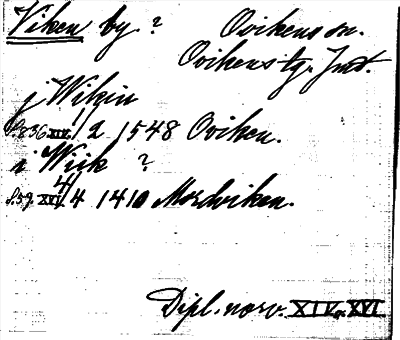 Viken by ? Ovikens sn.
Ovikens tg. Jmt.
j Wikin
S. 836 XIV. 1/2 1548 Oviken.
i Wiik ?
S. 59 XVI. 4/4 1410 Mordviken.
Dipl. norv. XIV o. XVI